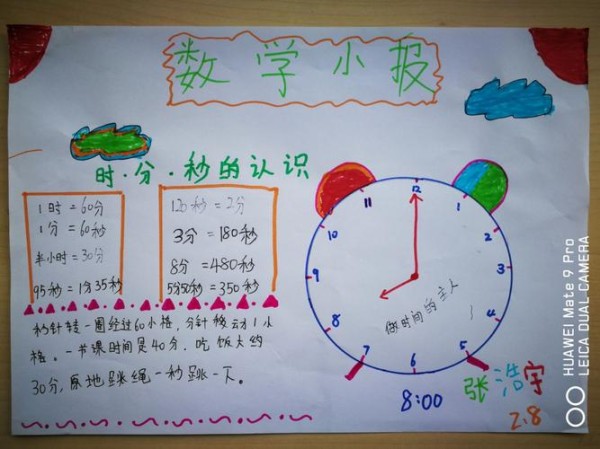 数学小报
时·分·秒的认识
1时=60分
1分=60秒
半小时=30分
95秒=1分35秒
120秒=2分
3分=180秒
8分=480秒
5分50秒=350秒
秒针转一圈经过60小格，分针被云力1小
格。一节课时间是40分，吃饭大约
30分，原地跳绳一秒跳一下。
12
1
2
3
4
5
6
7
8
9
10
11
做时间的主人
8:00
张浩宇
2.8
HUAWEI Mate 9 Pro
LEICA DUAL CAMERA